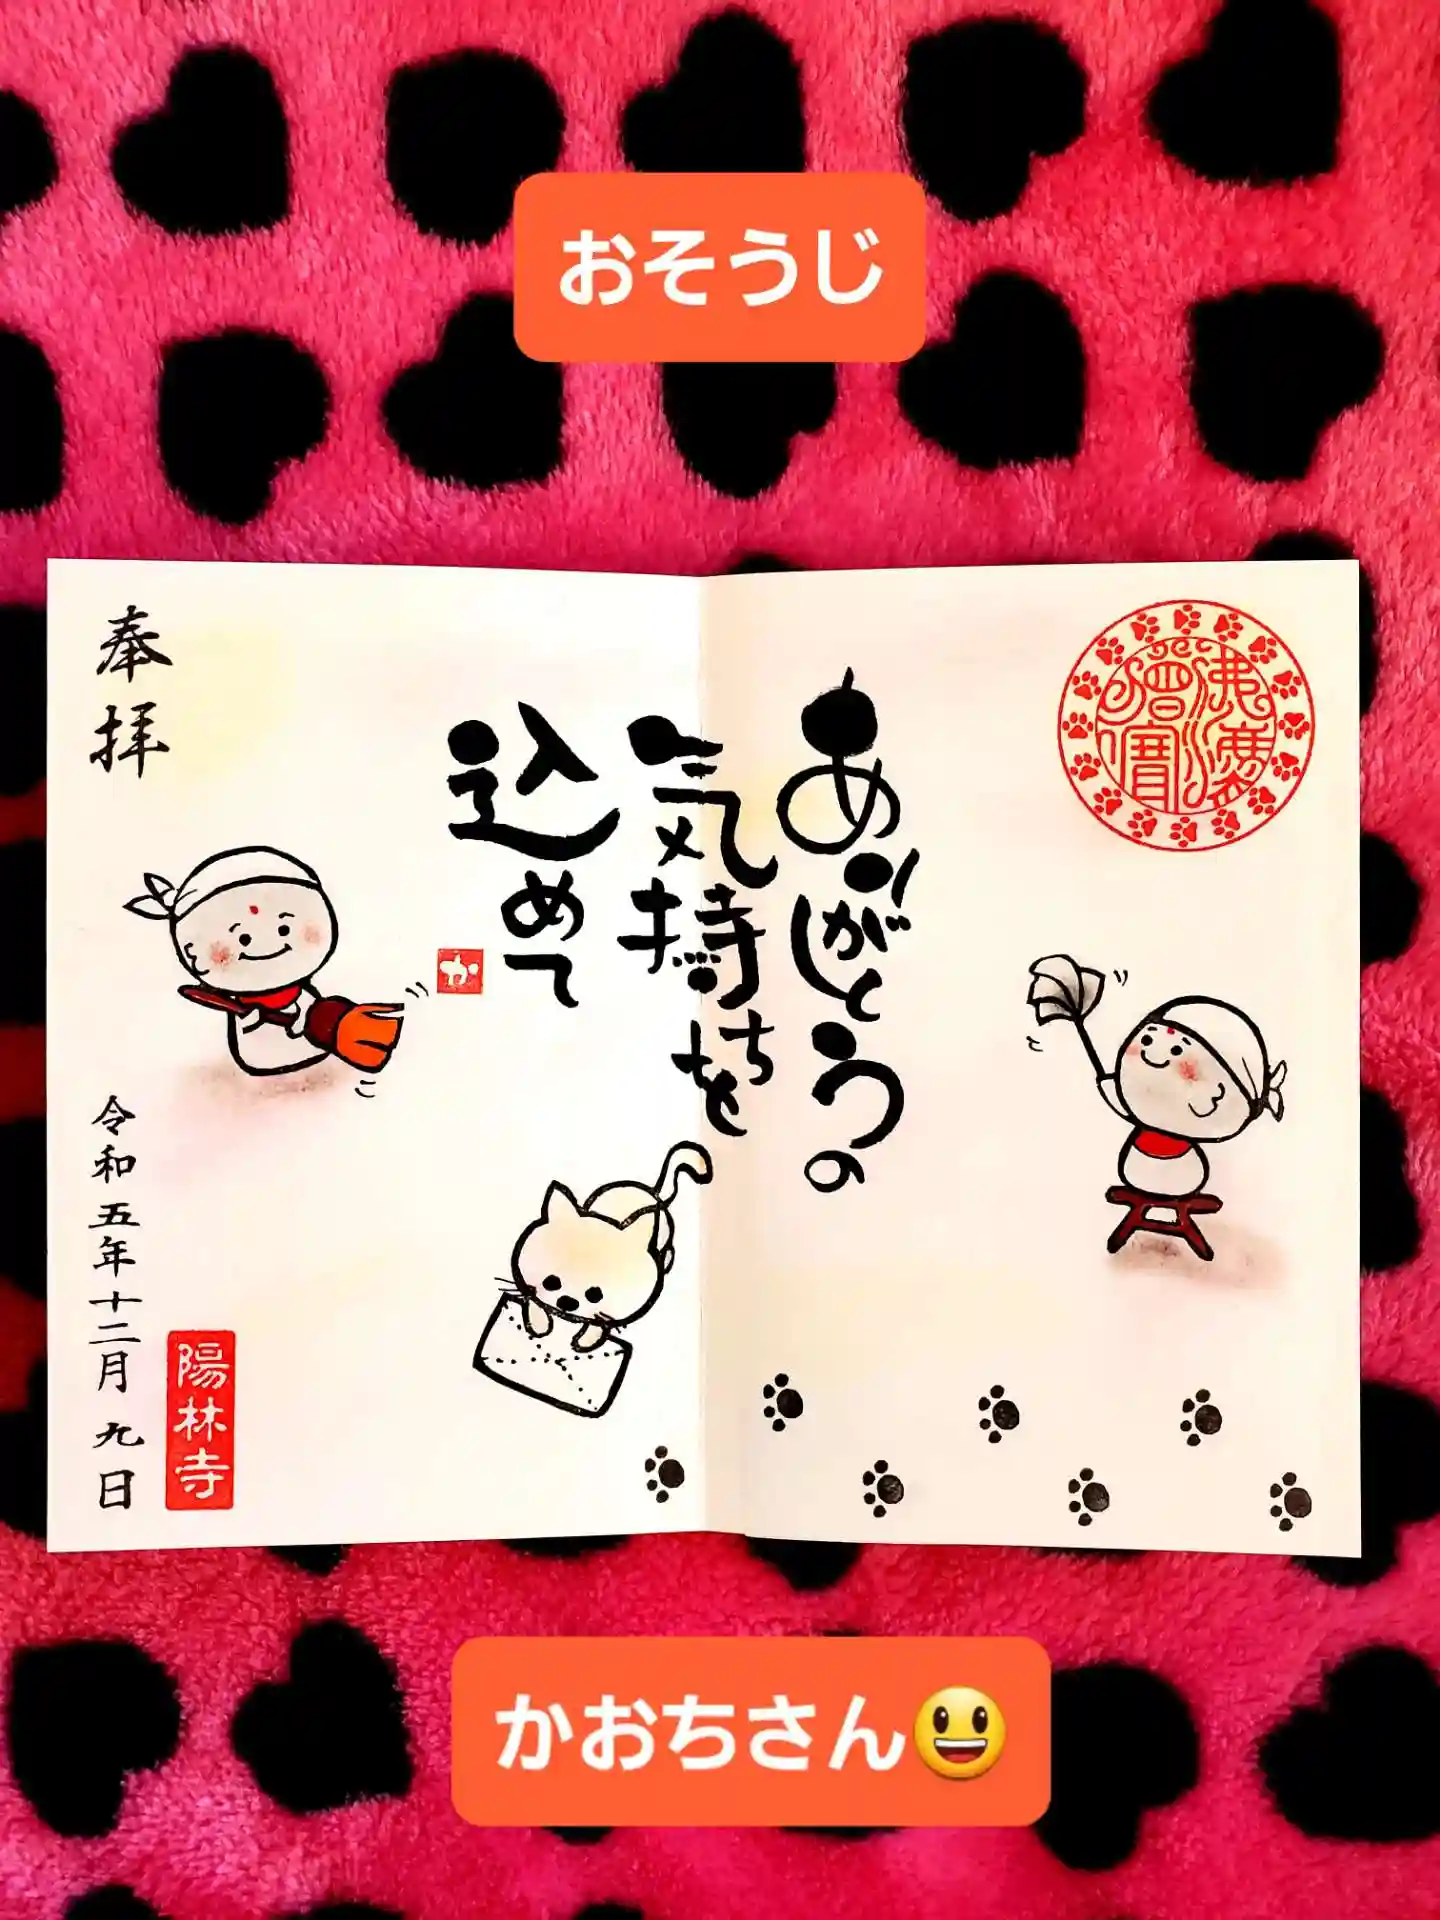 おそうじ
ありがとうの
気持ちを
込めて
奉拝
か
令和五年十二月九日
陽林寺
かおちさん😃